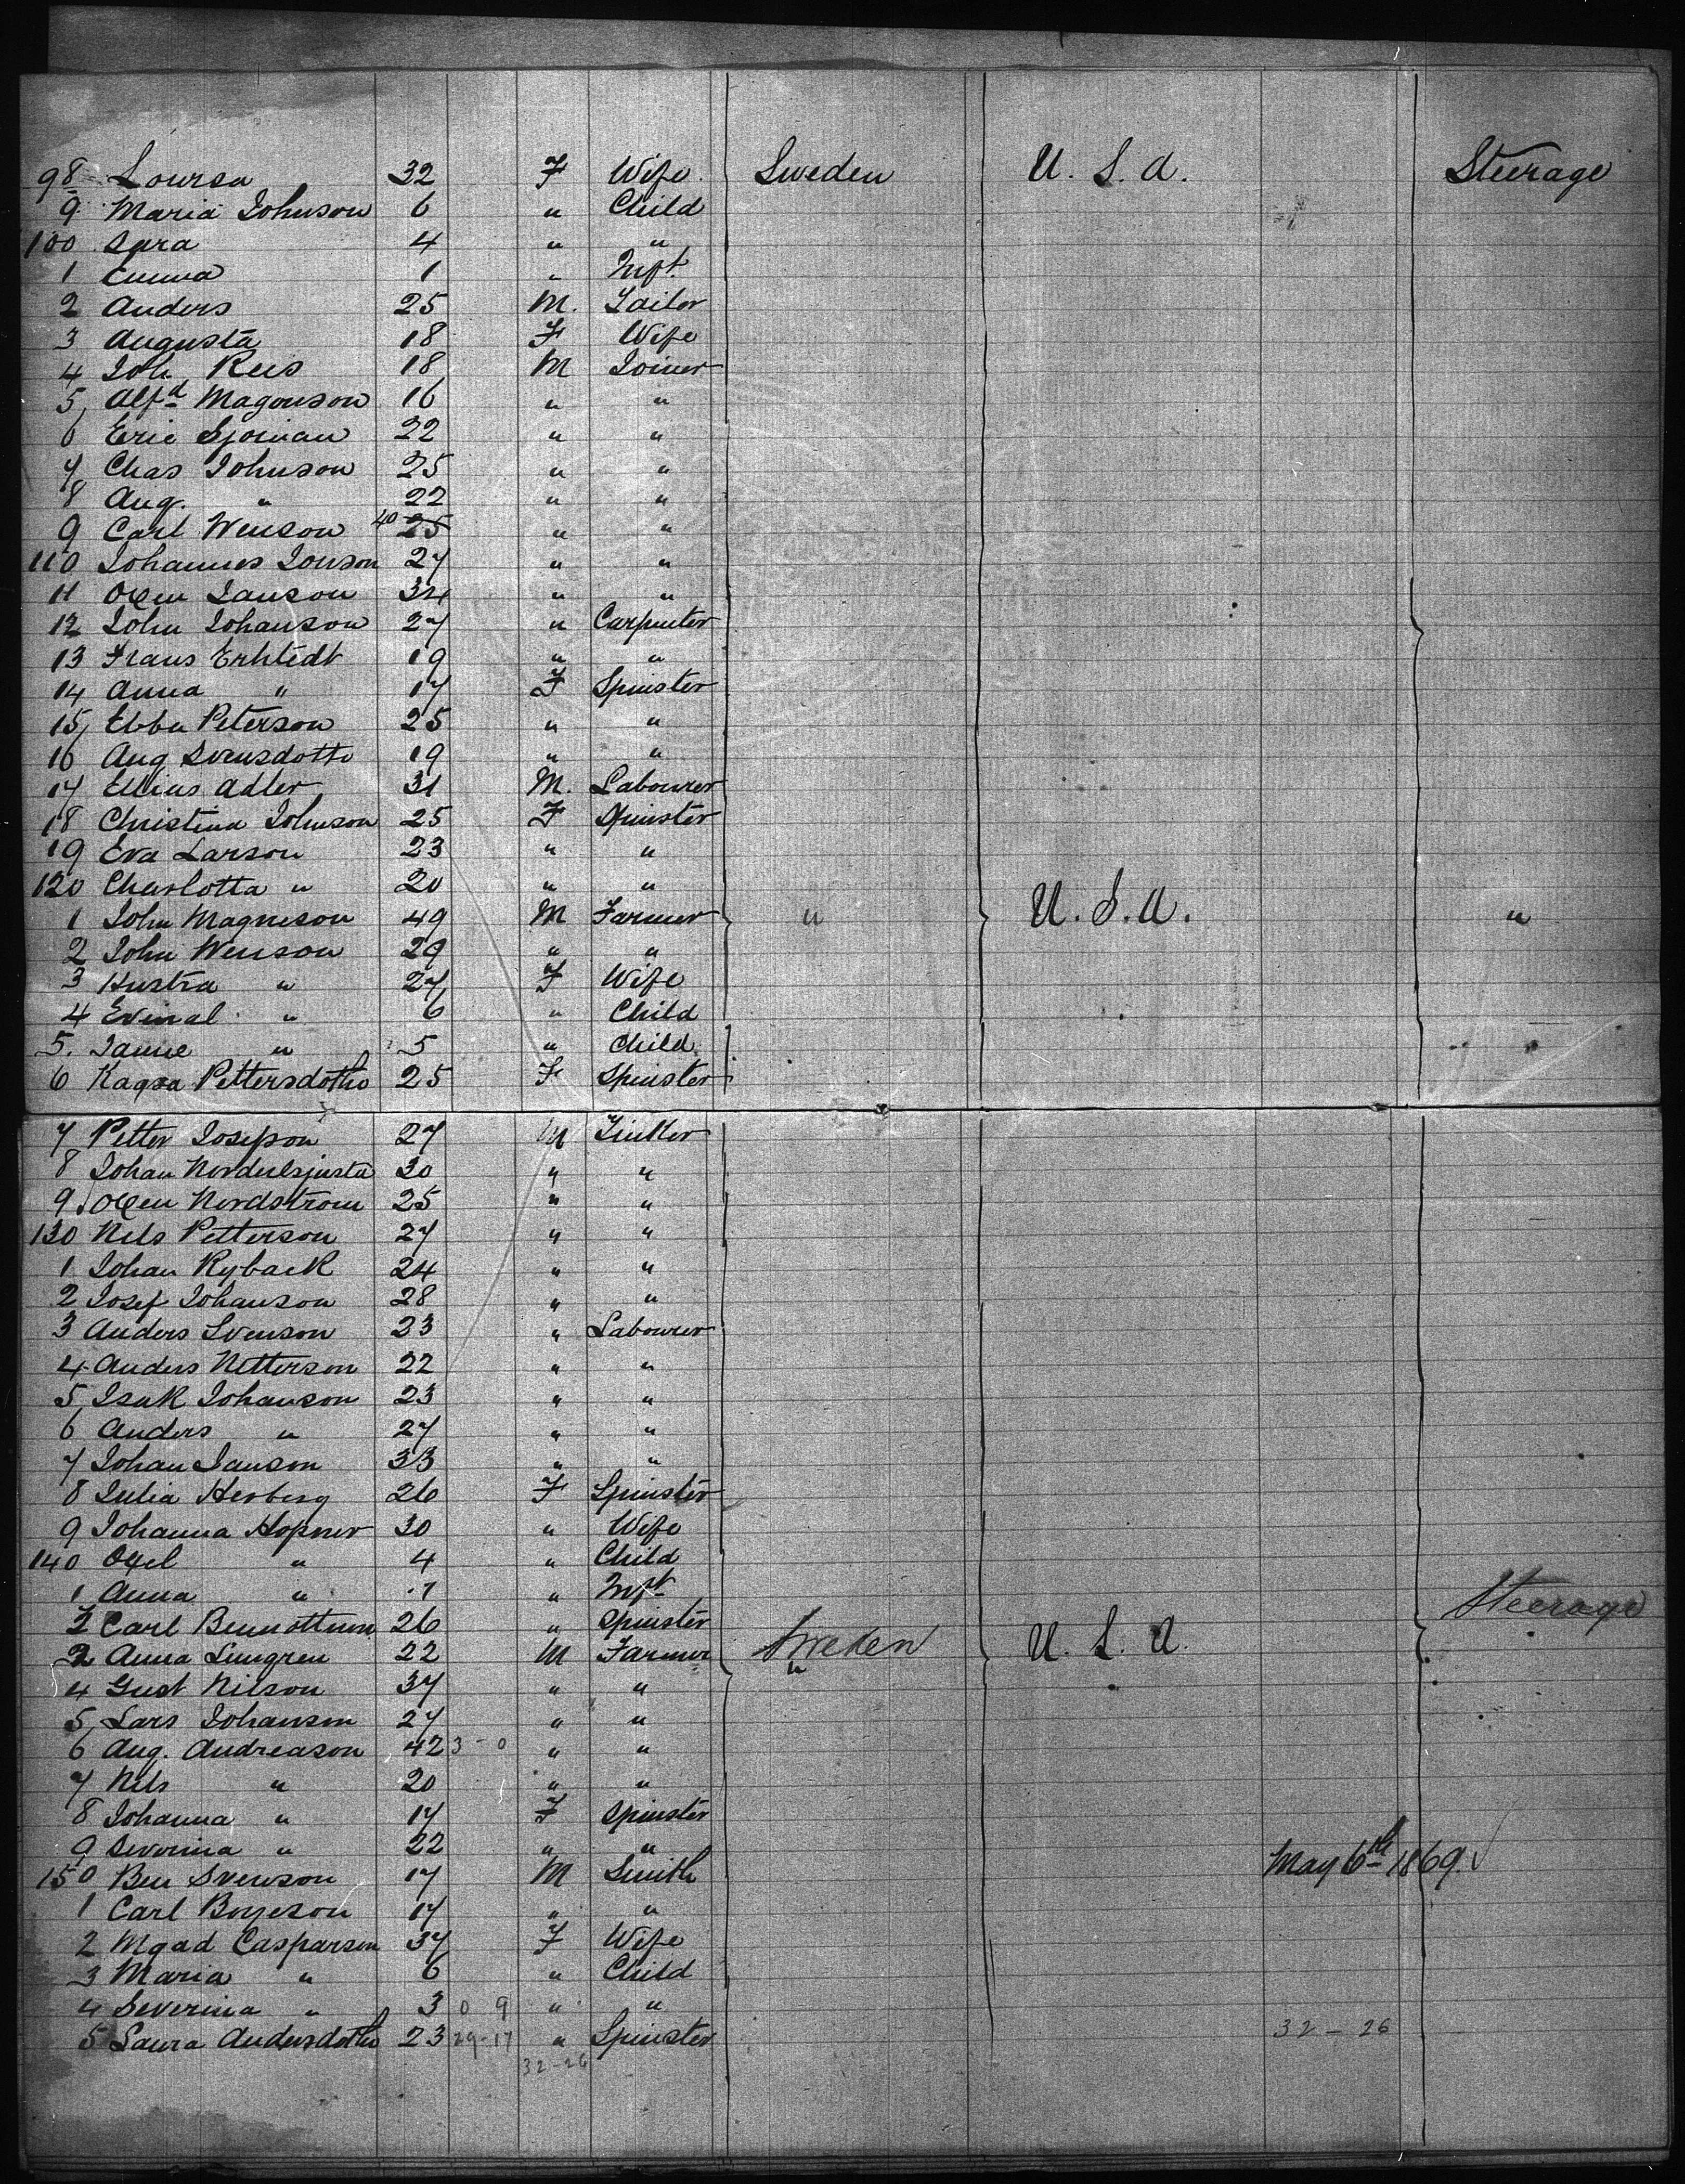 98 Loursa 32 F Wife Sweden U. S. A. Steerage
9 Maria Johnson 6 " Child
100 Sara 4 " "
1 Emma 1 " Inft.
2 Anders 25 M. Tailor
3 Augusta 18 F Wife
4 Joh. Reis 18 M Joiner
5 Alfd Magonson 16 " "
6 Eric Sjoman 22 " "
7 Chas Johnson 25 " "
8 Aug. " 22 " "
9 Carl Wenson 40 25 " "
110 Johannes Jonson 27 " "
11 Oxen Janson 34 " "
12 John Johanson 27 " Carpenter
13 Frans Erhtedt 19 " "
14 Anna " 17 F Spinster
15 Ebba Peterson 25 " "
16 Aug Svensdotte 19 " "
17 Elius Adler 31 M. Labourer
18 Christina Johnson 25 F Spinster
19 Eva Larson 23 " "
120 Charlotta " 20 " "
1 John Magneson 49 M Farmer " U. S. A. "
2 John Wenson 29 " "
3 Hustra " 27 F Wife
4 Evinal " 6 " Child
5. Janne " 5 " Child
6 Kagsa Pettersdotho 25 F Spinster
7 Petter Josepson 27 M Tinker
8 Johan 30 " "
9 Oxen Nordstrom 25 " "
130 Nils Petterson 27 " "
1 Johan Ryback 24 " "
2 Josef Johanson 28 " "
3 Anders Svenson 23 " Labourer
4 Anders Netterson 22 " "
5 Isak Johanson 23 " "
6 Anders " 27 " "
7 Johan Janson 33 " "
8 Julia Herberg 26 F Spinster
9 Johanna Hopner 30 " Wife
140 Oxel " 4 " Child
1 Anna " .7 " Inft Steerage
2 Carl 26 " Spinster
3 Anna Lungren 22 M Farmer Sweden " U. S. A.
4 Gust Nilson 37 " "
5 Lars Johanson 27 " "
6 Aug. Andreason 42 3 - 0 " "
7 Nils " 20 " "
8 Johanna " 17 F Spinster
9 Severina " 22 " " May 6th 1869.
150 Ben Svenson 17 M Smith
1 Carl Boyeson 17 " "
2 Mgad Casparson 37 F Wife
3 Maria " 6 " Child
4 Severina " 3 0 9 " "
5 Laura Andersdotho 23 29-17 " Spinster 32 - 26
32-26